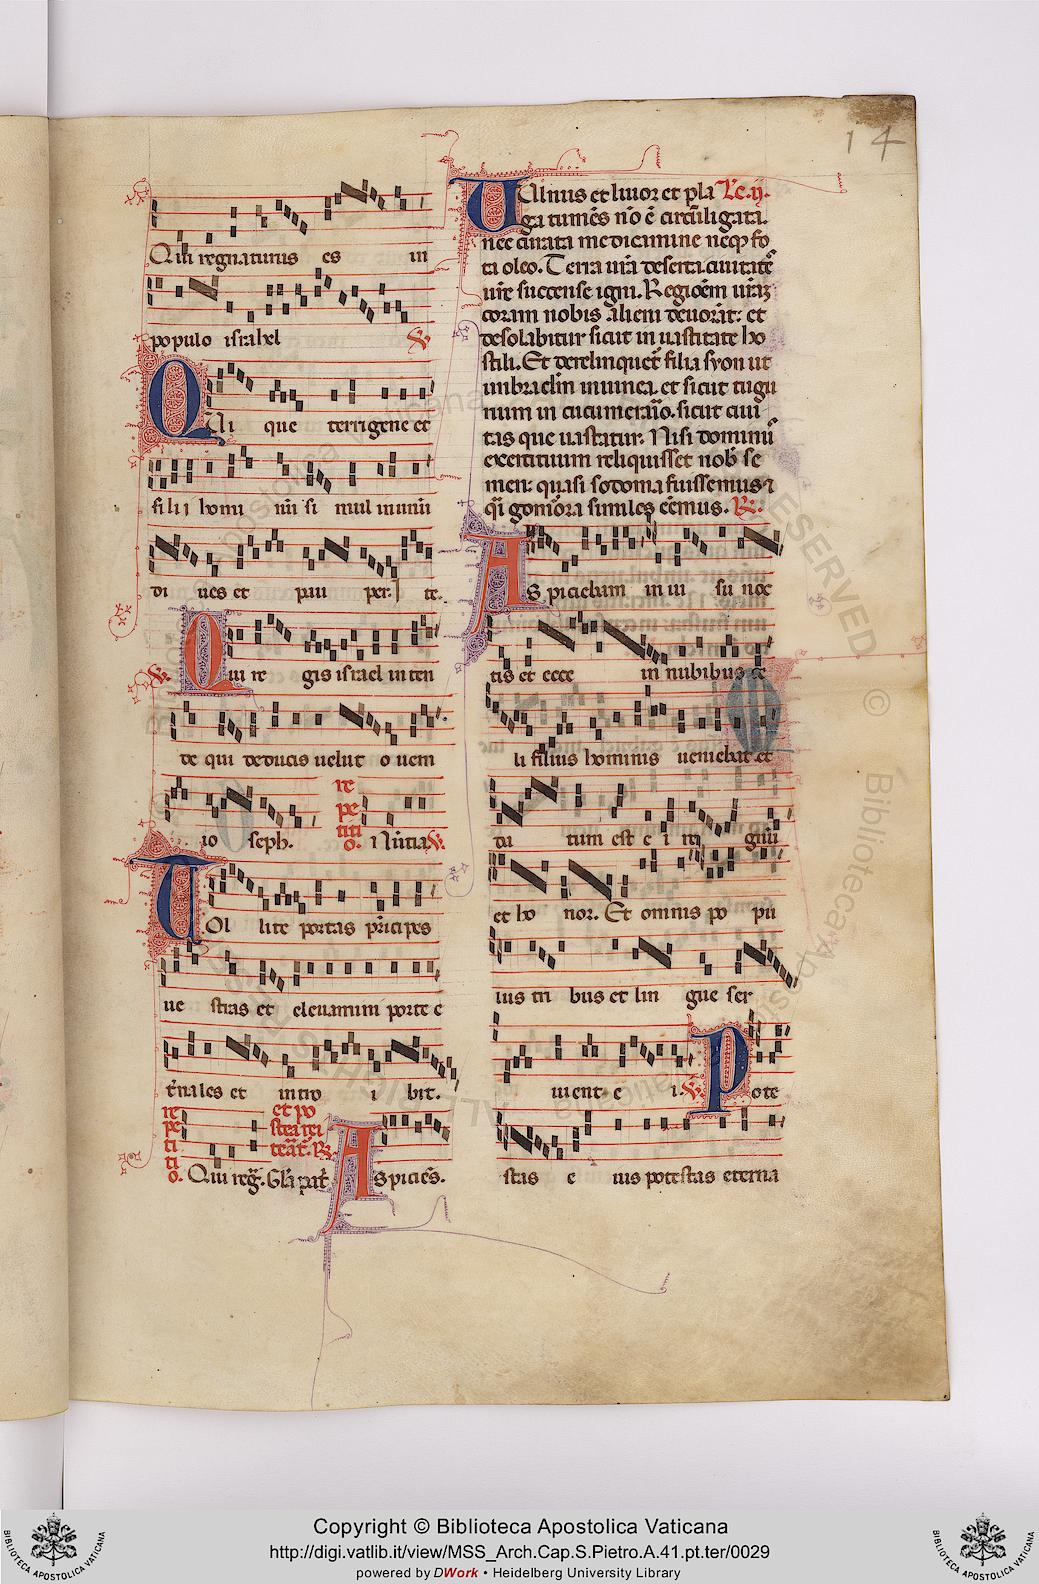 14
Qui regnaturus es in
populo israhel ℣.
Qui que terrigene et
filii homi nū si mul inunū
di ues et pau per. te.
℣. Qui re gis israel inten
de qui deducis uelut o uem
io seph. re pe titi o. Nūtia ℣.
Tol lite portas pͥncipes
ue stras et eleuamini porte e
tͤnales et intro i bit.
re pe ti ti o. Qui reg̃. et po stea rei teat̃. ℟. Gl̃a pat̃. Aspiciēs.
Uulnus et liuor et pla Lc. ij.
ga tumēs nō ē circũligata.
nec curata medicamine neqꝫ fo
ta oleo. Terra ur̃a deserta. ciuitatẽ
ur̃e succense igni. Regiõem ur̃aꝫ
coram nobis alieni deuorãt: et
desolabitur sicut in uastitate ho
stili. Et derelinquet̃ filia syon ut
umbraclm̃ in uinea. et sicut tugu
rium in cucumerario. sicut ciui
tas que uastatur. Nisi dominũ
exercituum reliquisset nob̃ se
men: quasi sodoma fuissemus ⁊
q̃i gomora similes eẽmus. ℟.
Aspiciebam in ui su noc
tis et ecce in nubibus ce
li filius hominis ueniebat et
da tum est e i re gnũ
et ho nor. Et omnis po pu
lus tri bus et lin gue ser
uient e i. ℣. Pote
stas e ius potestas eterna
Copyright © Biblioteca Apostolica Vaticana
http://digi.vatlib.it/view/MSS_Arch.Cap.S.Pietro.A.41.pt.ter/0029
powered by DWork • Heidelberg University Library
BIBLIOTECA APOSTOLICA VATICANA
BIBLIOTECA APOSTOLICA VATICANA